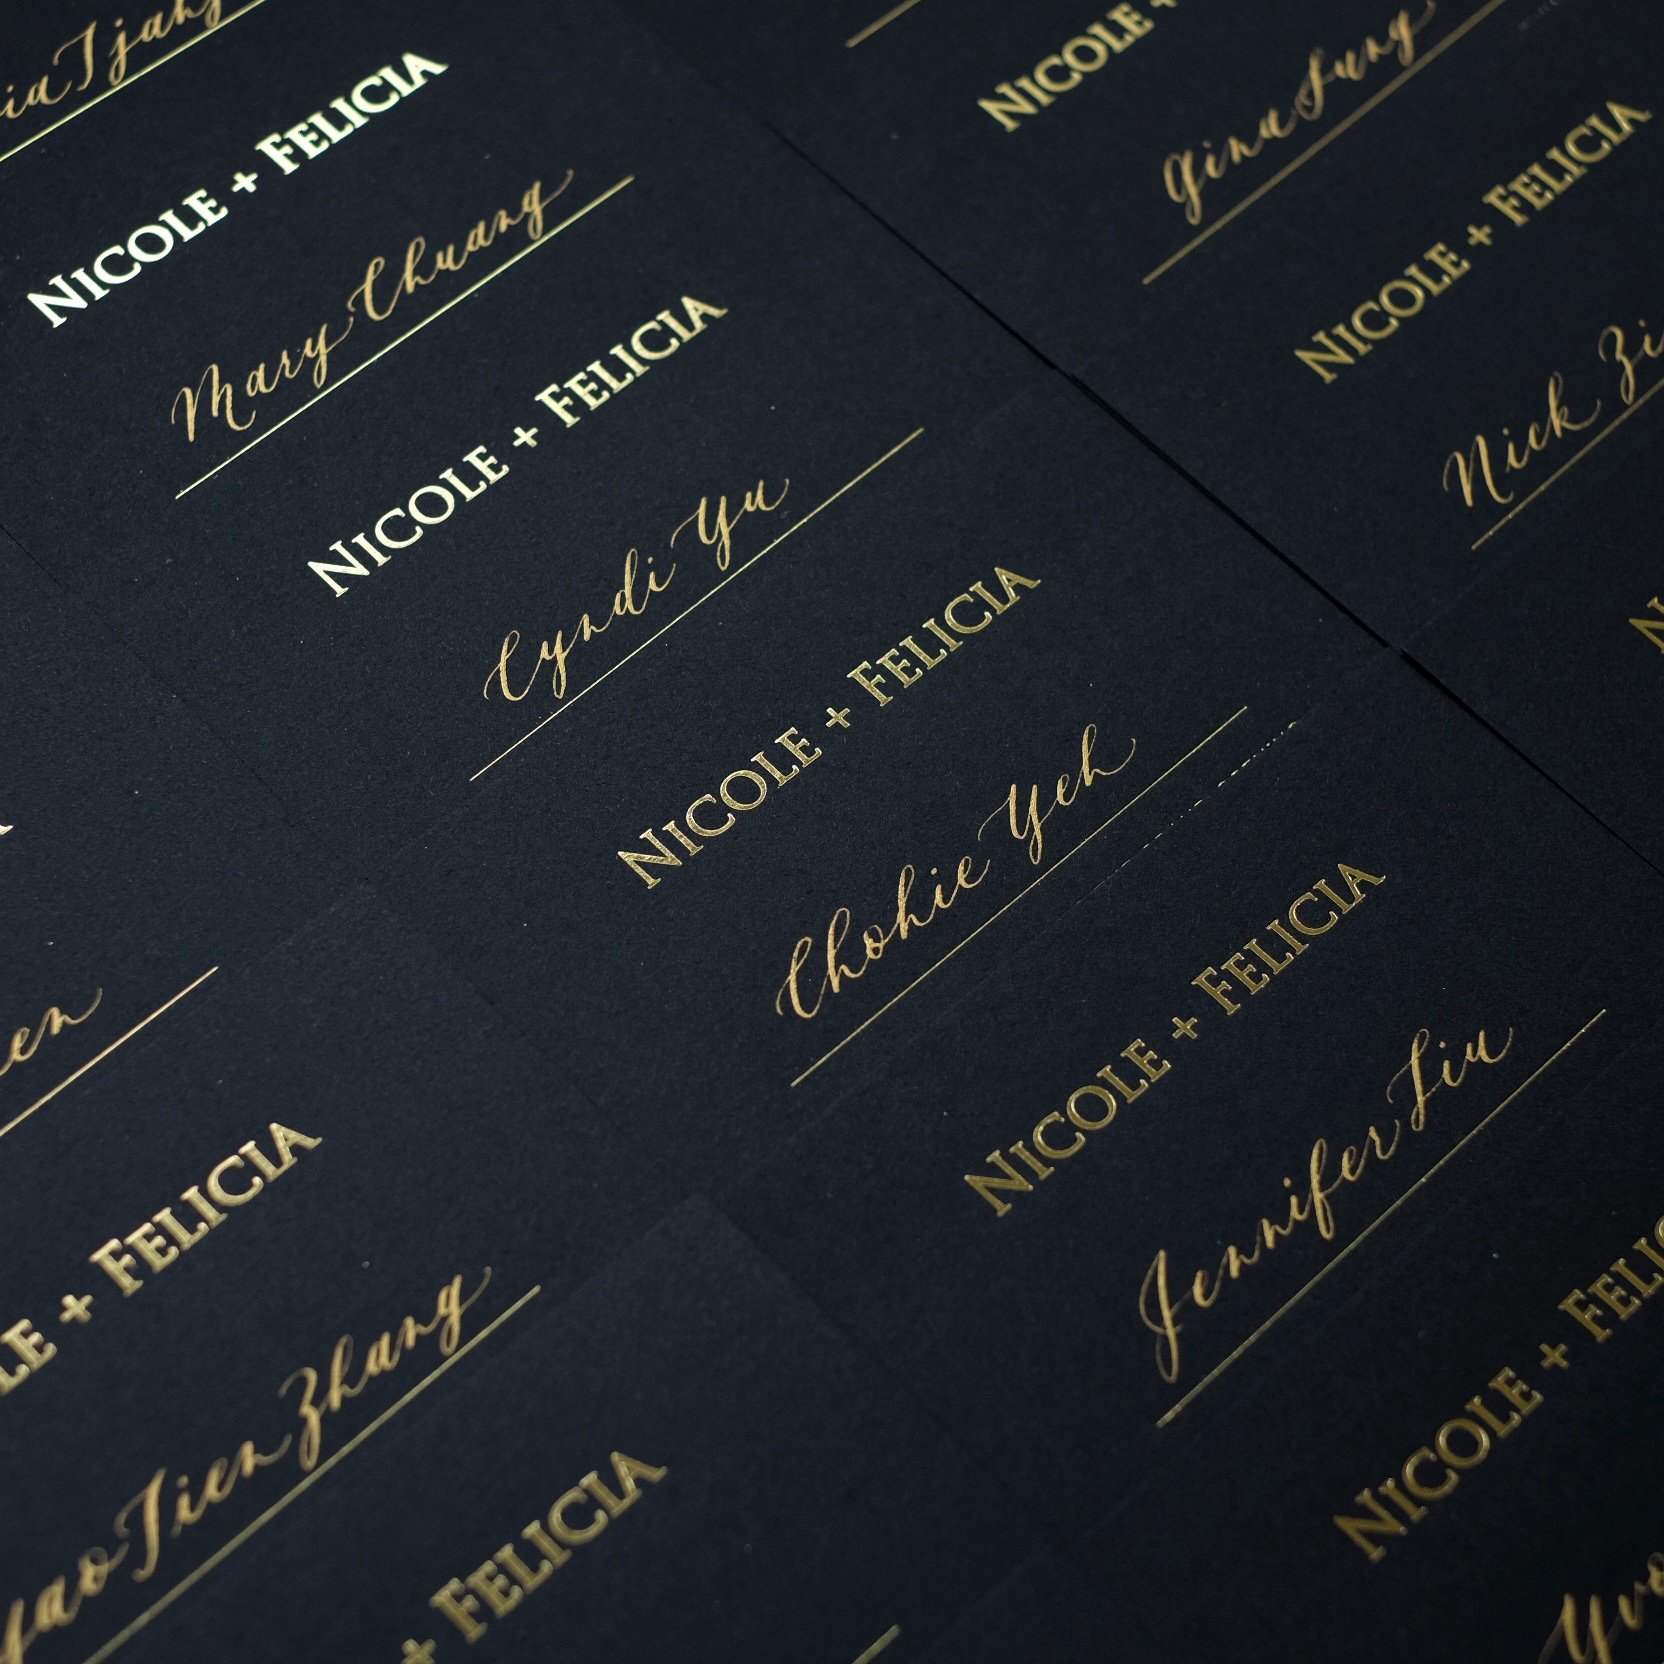 NICOLE + FELICIA
Mary Chuang
NICOLE + FELICIA
Cyndi Yu
NICOLE + FELICIA
Chohie Yeh
NICOLE + FELICIA
Jennifer Liu
NICOLE +
Gina Sung
NICOLE + FELICIA
Nick
NICOLE +
+ FELICIA
Tien Zhang
+ FELICIA